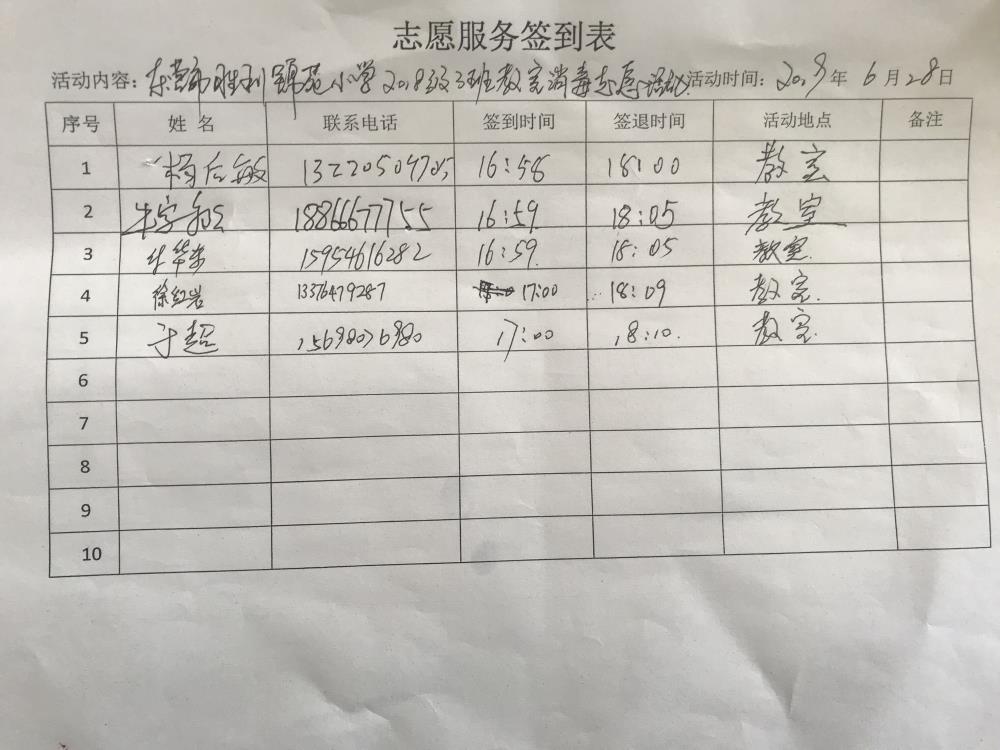 志愿服务签到表
活动内容：东营市胜利锦苑小学2018级3班教室消毒志愿活动 活动时间：2019年 6 月 28 日
序号 姓 名 联系电话 签到时间 签退时间 活动地点 备注
1 杨后敏 16:58 18:00 教室
2 18866677755 16:59 18:05 教室
3 15954616282 16:59. 18:05 教室.
4 徐红岩 13376479287 17:00 18:09 教室.
5 于超 15698076980 17:00 18:10. 教室.
6
7
8
9
10